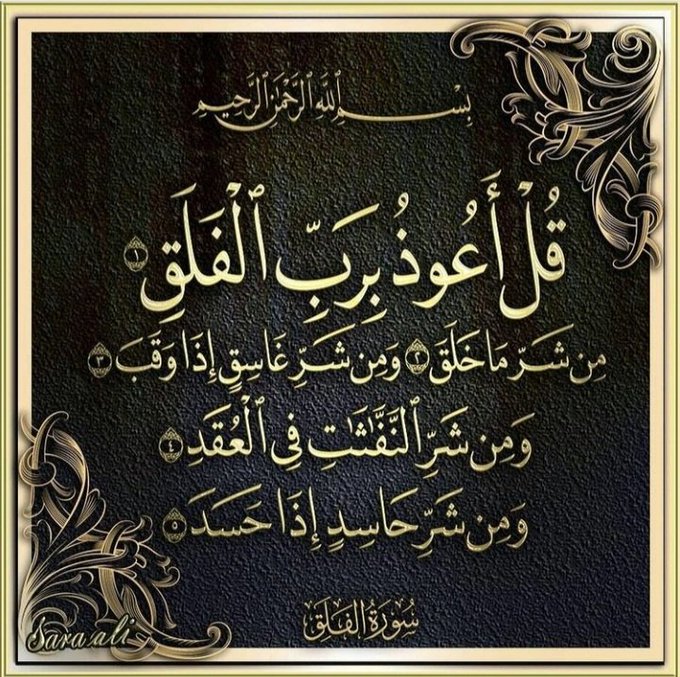 بِسْمِ ٱللَّهِ ٱلرَّحْمَٰنِ ٱلرَّحِيمِ
قُلْ أَعُوذُ بِرَبِّ ٱلْفَلَقِ ١
مِن شَرِّ مَا خَلَقَ ٢ وَمِن شَرِّ غَاسِقٍ إِذَا وَقَبَ ٣
وَمِن شَرِّ ٱلنَّفَّٰثَٰتِ فِى ٱلْعُقَدِ ٤
وَمِن شَرِّ حَاسِدٍ إِذَا حَسَدَ ٥
سُورَةُ الفَلَقِ
Sara ali